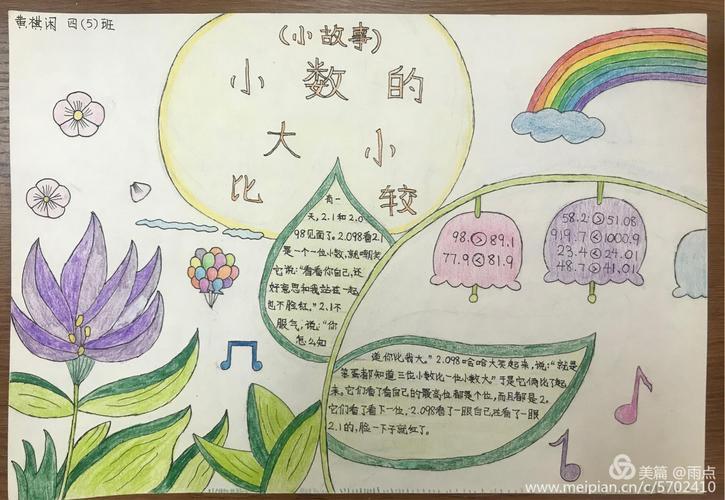 黄棋闲 四(5)班
(小故事)
小数的
大小
比较
有一
天，2.1和2.0
98见面了。2.098看2.1
是一个一位小数，就嘲笑
它说："看看你自己，还
好意思和我站在一起，
也不脸红。"2.1不
服气，说："你
怎么知
道你比我大。"2.098哈哈大笑起来，说："就是
笨蛋都知道三位小数比一位小数大。"于是它俩比了起
来。它们看了看自己的最高位都是个位，而且都是2。
它们看了看下一位，2.098看了一眼自己，还看了一眼
2.1的，脸一下子就红了。
98.1>89.1
77.9<81.9
58.2>51.08
919.7<1000.9
23.4<24.01
48.7>41.01
美篇 @雨点
www.meipian.cn/c/5702410